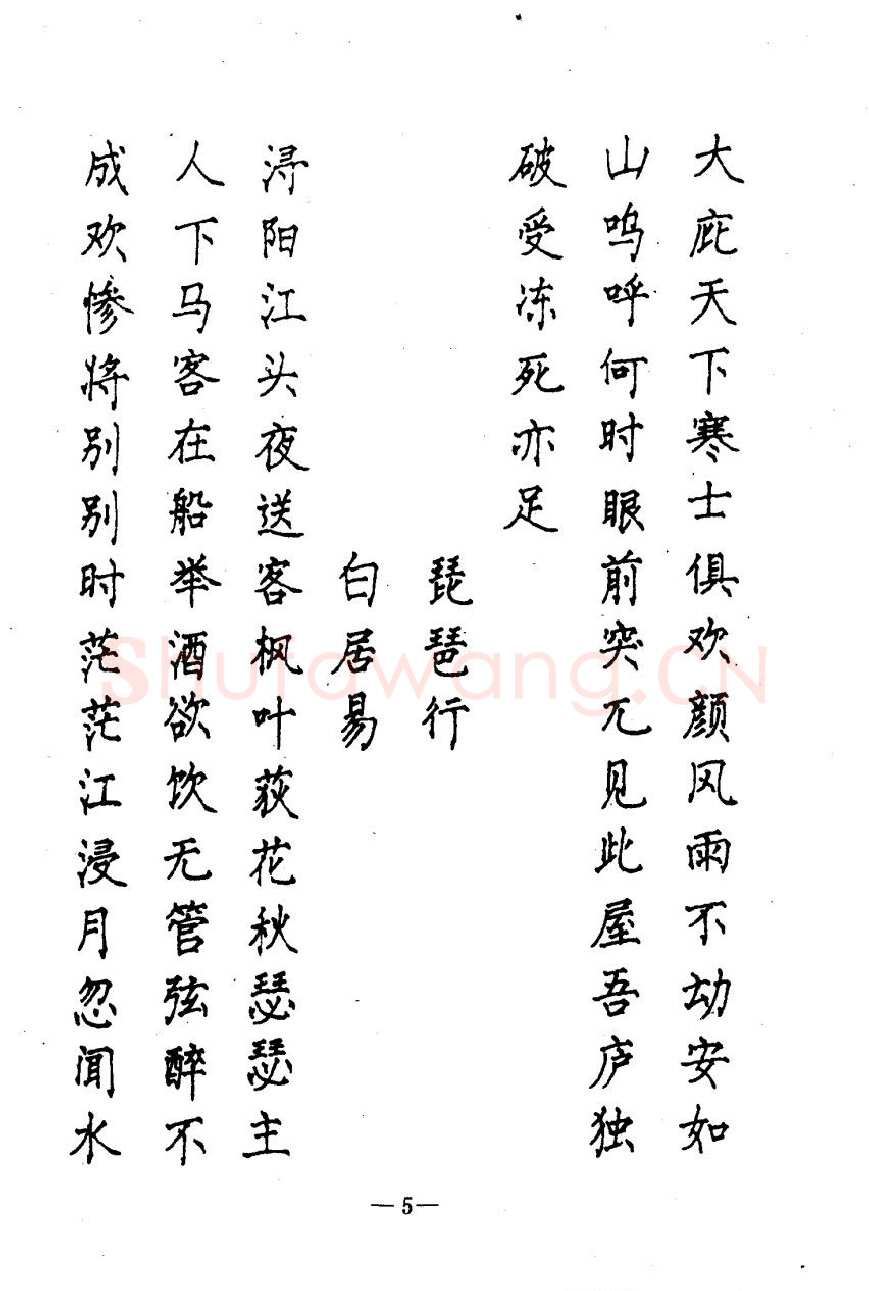 大庇天下寒士俱欢颜风雨不动安如
山呜呼何时眼前突兀见此屋吾庐独
破受冻死亦足
琵琶行
白居易
浔阳江头夜送客枫叶荻花秋瑟瑟主
人下马客在船举酒欲饮无管弦醉不
成欢惨将别别时茫茫江浸月忽闻水
—5—
Shufawang.CN